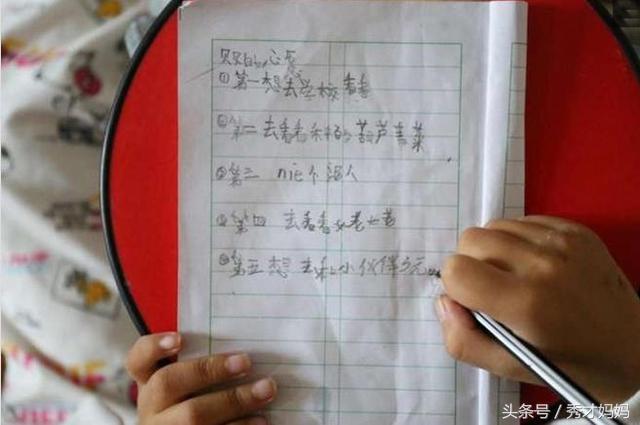 贝贝的心愿
①第一想去学校看看
②第二去看看禾的葫芦青菜
③第三 nie个泥人
④第四 去看看
⑤第五想 去和小伙伴
头条号 / 秀才妈妈